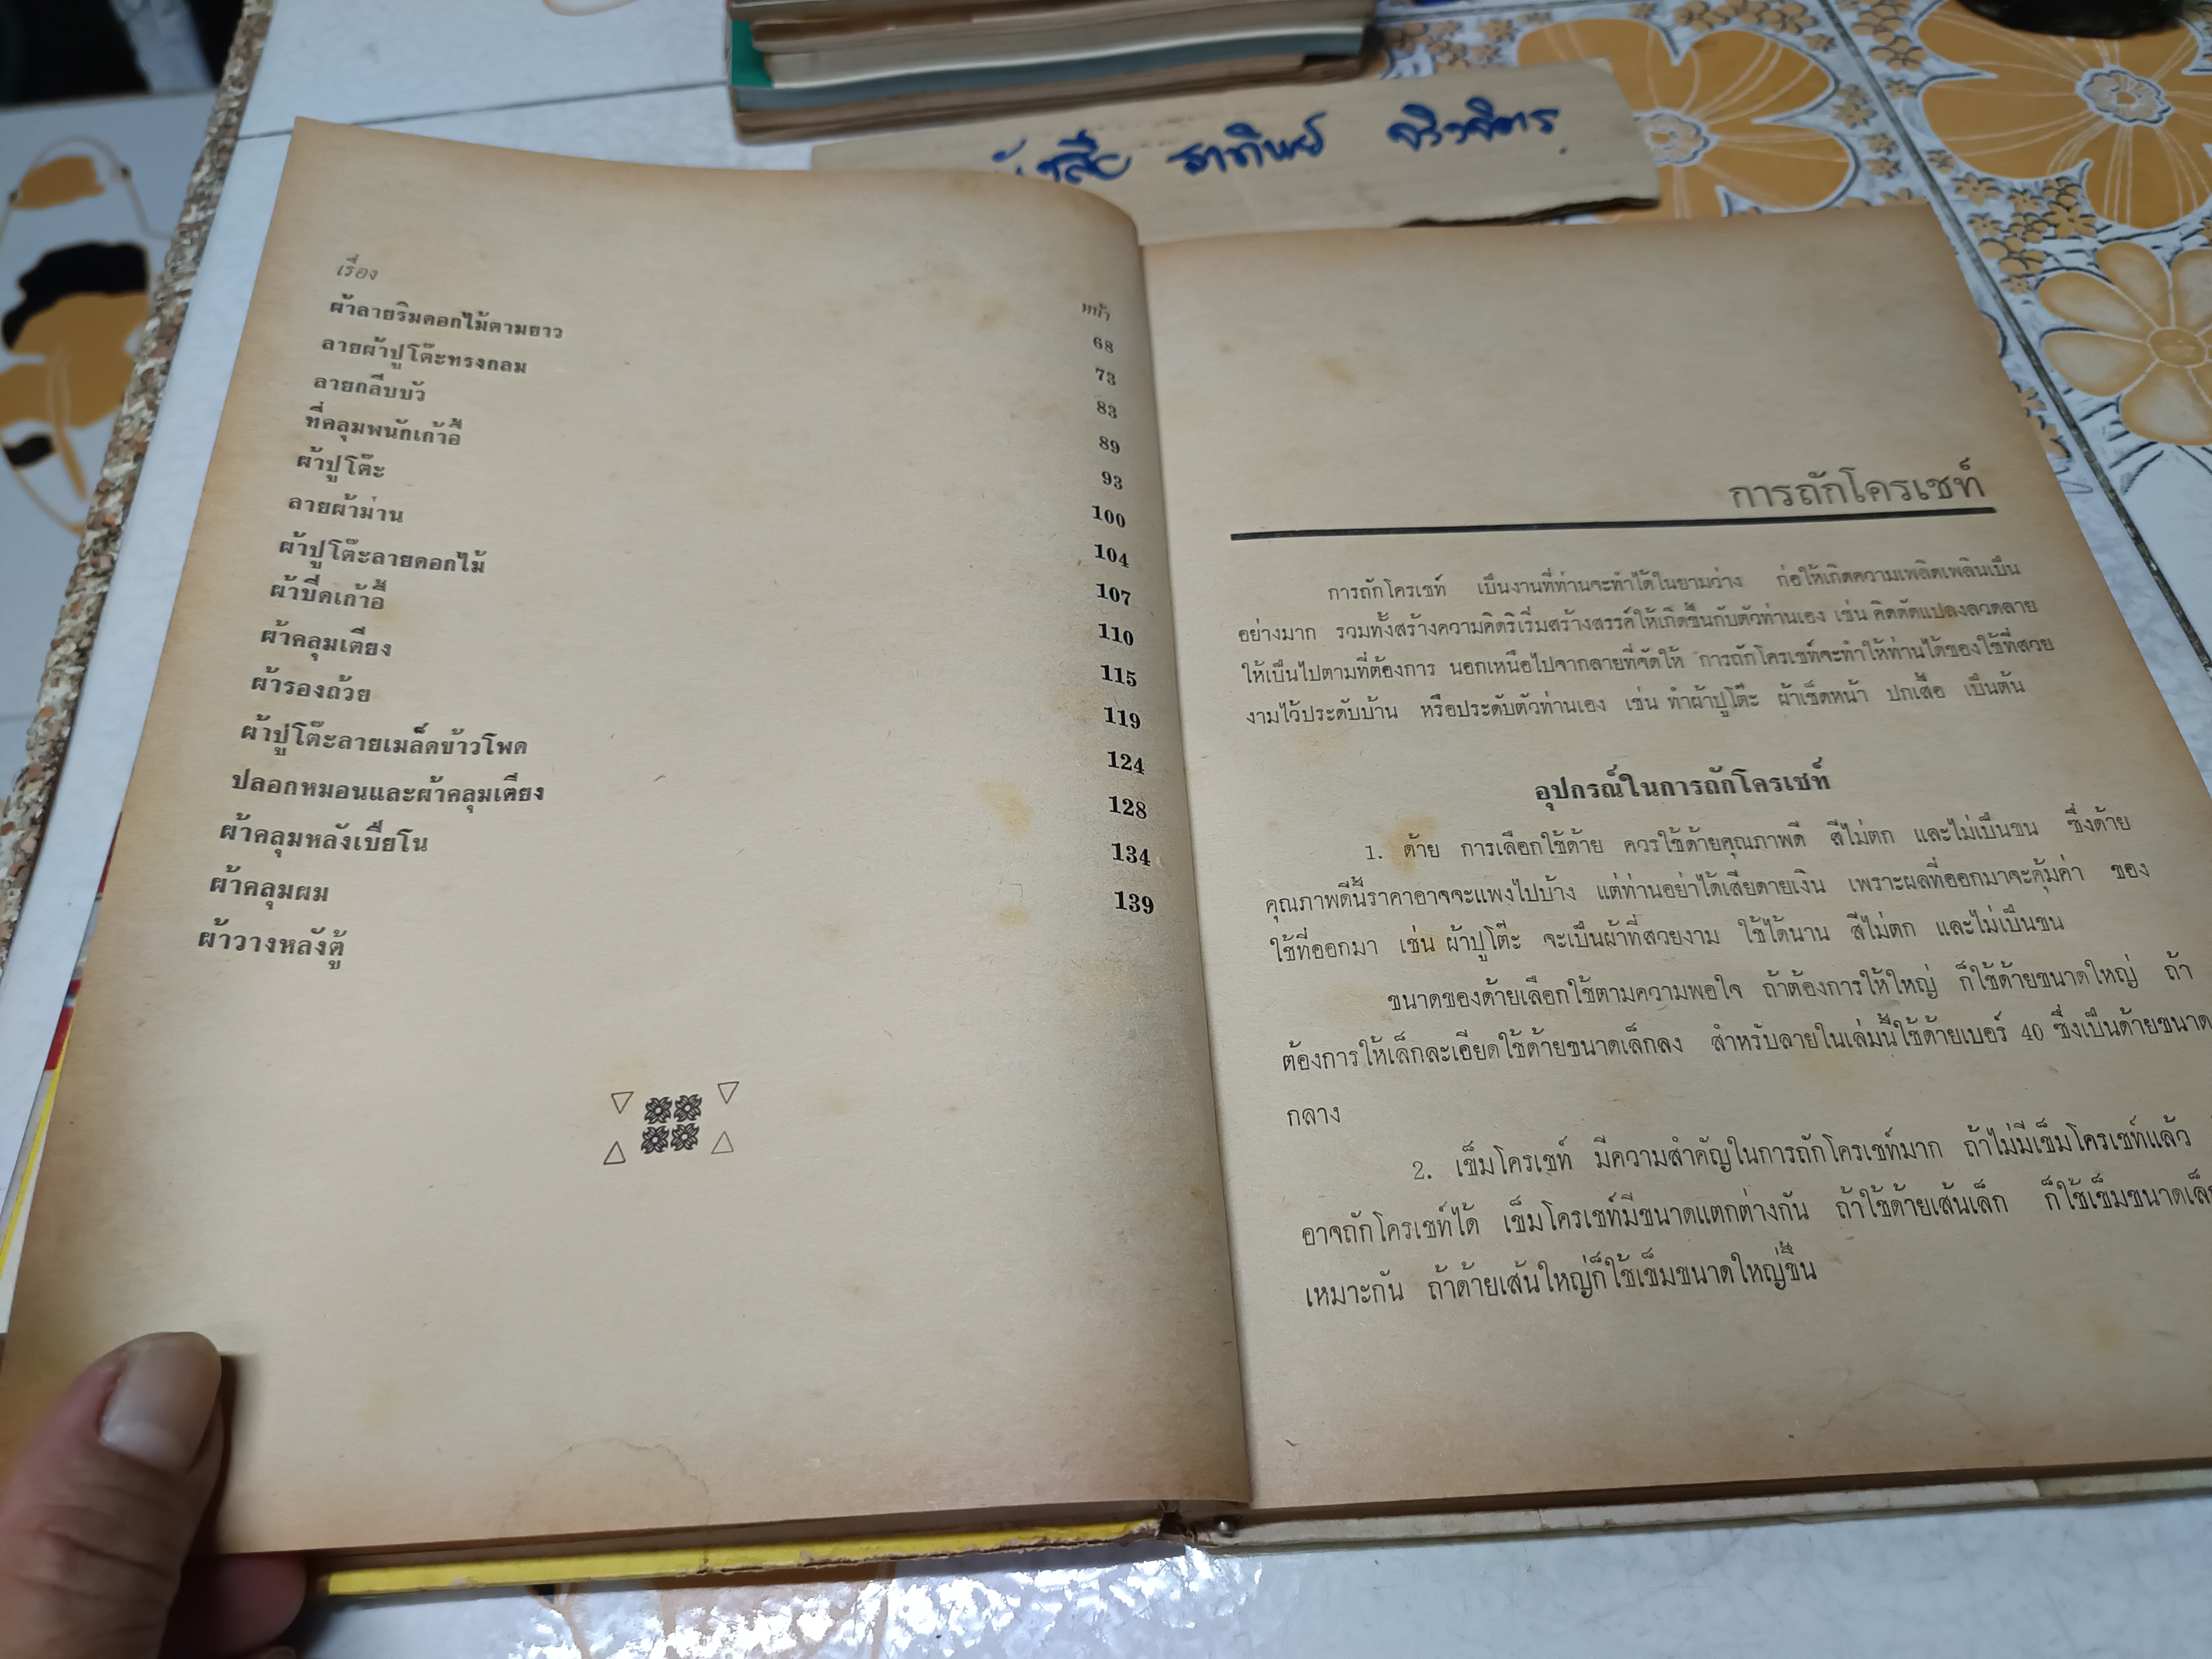 เรื่อง หน้า
ผ้าลายริมดอกไม้ตามยาว 68
ลายผ้าปูโต๊ะทรงกลม 73
ลายกลีบบัว 83
ที่คลุมพนักเก้าอี้ 89
ผ้าปูโต๊ะ 93
ลายผ้าม่าน 100
ผ้าปูโต๊ะลายดอกไม้ 104
ผ้าขีดเก้าอี้ 107
ผ้าคลุมเตียง 110
ผ้ารองถ้วย 115
ผ้าปูโต๊ะลายเมล็ดข้าวโพด 119
ปลอกหมอนและผ้าคลุมเตียง 124
ผ้าคลุมหลังเปียโน 128
ผ้าคลุมผม 134
ผ้าวางหลังตู้ 139
การถักโครเชท์
การถักโครเชท์ เป็นงานที่ท่านจะทำได้ในยามว่าง ก่อให้เกิดความเพลิดเพลินเป็น
อย่างมาก รวมทั้งสร้างความคิดริเริ่มสร้างสรรค์ให้เกิดขึ้นกับตัวท่านเอง เช่น คิดดัดแปลงลวดลาย
ให้เป็นไปตามที่ต้องการ นอกเหนือไปจากลายที่จัดให้ การถักโครเชท์จะทำให้ท่านได้ของใช้ที่สวย
งามไว้ประดับบ้าน หรือประดับตัวท่านเอง เช่น ทำผ้าปูโต๊ะ ผ้าเช็ดหน้า ปกเสื้อ เป็นต้น
อุปกรณ์ในการถักโครเชท์
1. ด้าย การเลือกใช้ด้าย ควรใช้ด้ายคุณภาพดี สีไม่ตก และไม่เป็นขน ซึ่งด้าย
คุณภาพดีนี้ราคาอาจจะแพงไปบ้าง แต่ท่านอย่าได้เสียดายเงิน เพราะผลที่ออกมาจะคุ้มค่า ของ
ใช้ที่ออกมา เช่น ผ้าปูโต๊ะ จะเป็นผ้าที่สวยงาม ใช้ได้นาน สีไม่ตก และไม่เป็นขน
ขนาดของด้ายเลือกใช้ตามความพอใจ ถ้าต้องการให้ใหญ่ ก็ใช้ด้ายขนาดใหญ่ ถ้า
ต้องการให้เล็กละเอียดใช้ด้ายขนาดเล็กลง สำหรับลายในเล่มนี้ใช้ด้ายเบอร์ 40 ซึ่งเป็นด้ายขนาด
กลาง
2. เข็มโครเชท์ มีความสำคัญในการถักโครเชท์มาก ถ้าไม่มีเข็มโครเชท์แล้ว
อาจถักโครเชท์ได้ เข็มโครเชท์มีขนาดแตกต่างกัน ถ้าใช้ด้ายเส้นเล็ก ก็ใช้เข็มขนาดเล็ก
เหมาะกัน ถ้าด้ายเส้นใหญ่ก็ใช้เข็มขนาดใหญ่ขึ้น